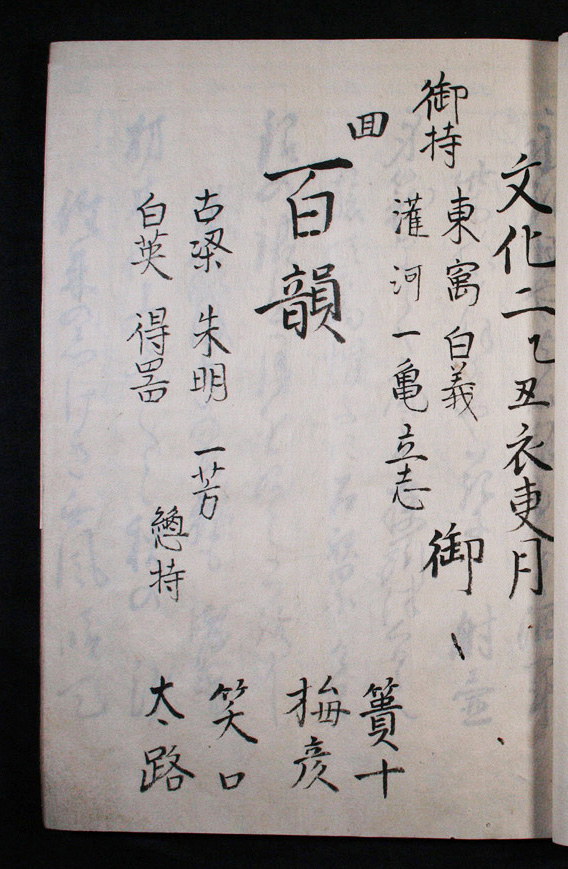 文化二乙丑衣更月
御持 東寓 白義 御
灌河 一亀 立志
回
百韻
古梁 朱明 一芳
白英 得器
惣持
簣十
梅彦
笑口
太路